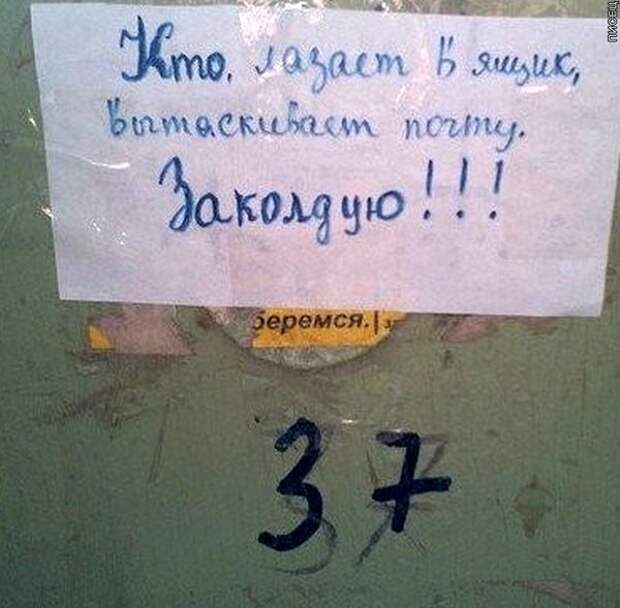 Кто, лазает в ящик,
вытаскивает почту.
Заколдую!!!
беремся.
37
ПИСЕЦ